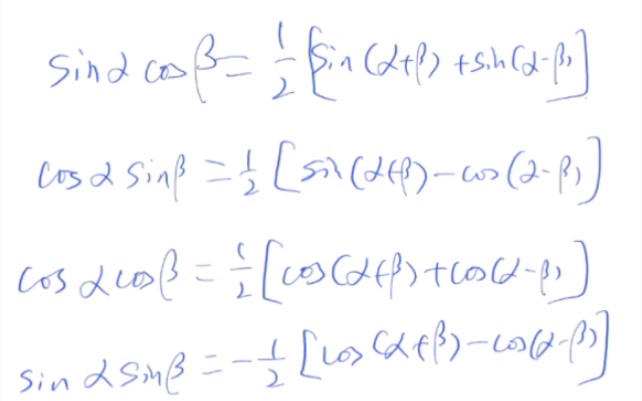 sinα cosβ = 1/2 [sin(α+β) + sin(α-β)]
cosα sinβ = 1/2 [sin(α+β) - cos(α-β)]
cosα cosβ = 1/2 [cos(α+β) + cos(α-β)]
sinα sinβ = -1/2 [cos(α+β) - cos(α-β)]